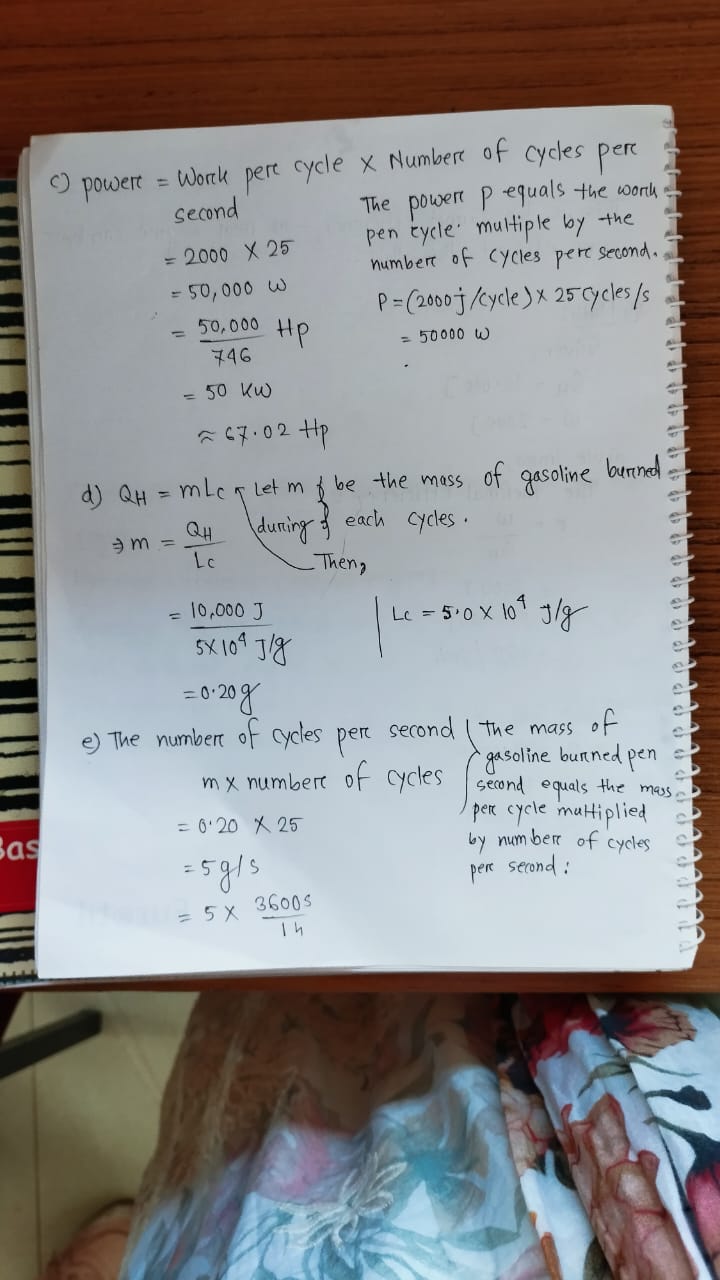 c) powerc = Worck perc cycle X Numberc of cycles perc
second
= 2000 X 25
= 50,000 w
= 50,000 / 746 Hp
= 50 KW
≈ 67.02 Hp
The powerc p equals the worck
pen cycle multiple by the
numberc of cycles perc second.
P = (2000j/cycle) X 25 cycles/s
= 50000 W
d) QH = mLc Let m be the mass of gasoline burned
during each cycles.
Then,
⇒ m = QH / Lc
= 10,000 J / 5X10⁴ J/g
= 0.20g
Lc = 5.0 X 10⁴ J/g
e) The numberc of cycles perc second
m x numberc of cycles
= 0.20 X 25
= 5g/s
= 5 X 3600s / 1h
The mass of
gasoline burned pen
second equals the mass
perc cycle multiplied
by numberc of cycles
perc second :
Bas